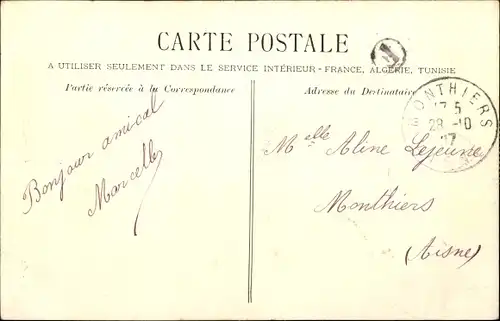 CARTE POSTALE
A UTILISER SEULEMENT DANS LE SERVICE INTÉRIEUR - FRANCE, ALGÉRIE, TUNISIE
Partie réservée à la Correspondance
Adresse du Destinataire
MONTHIERS
17 5
28 -10
Bonjour amical
Marcelle
Melle Aline Lejeune
Monthiers
(Aisne)